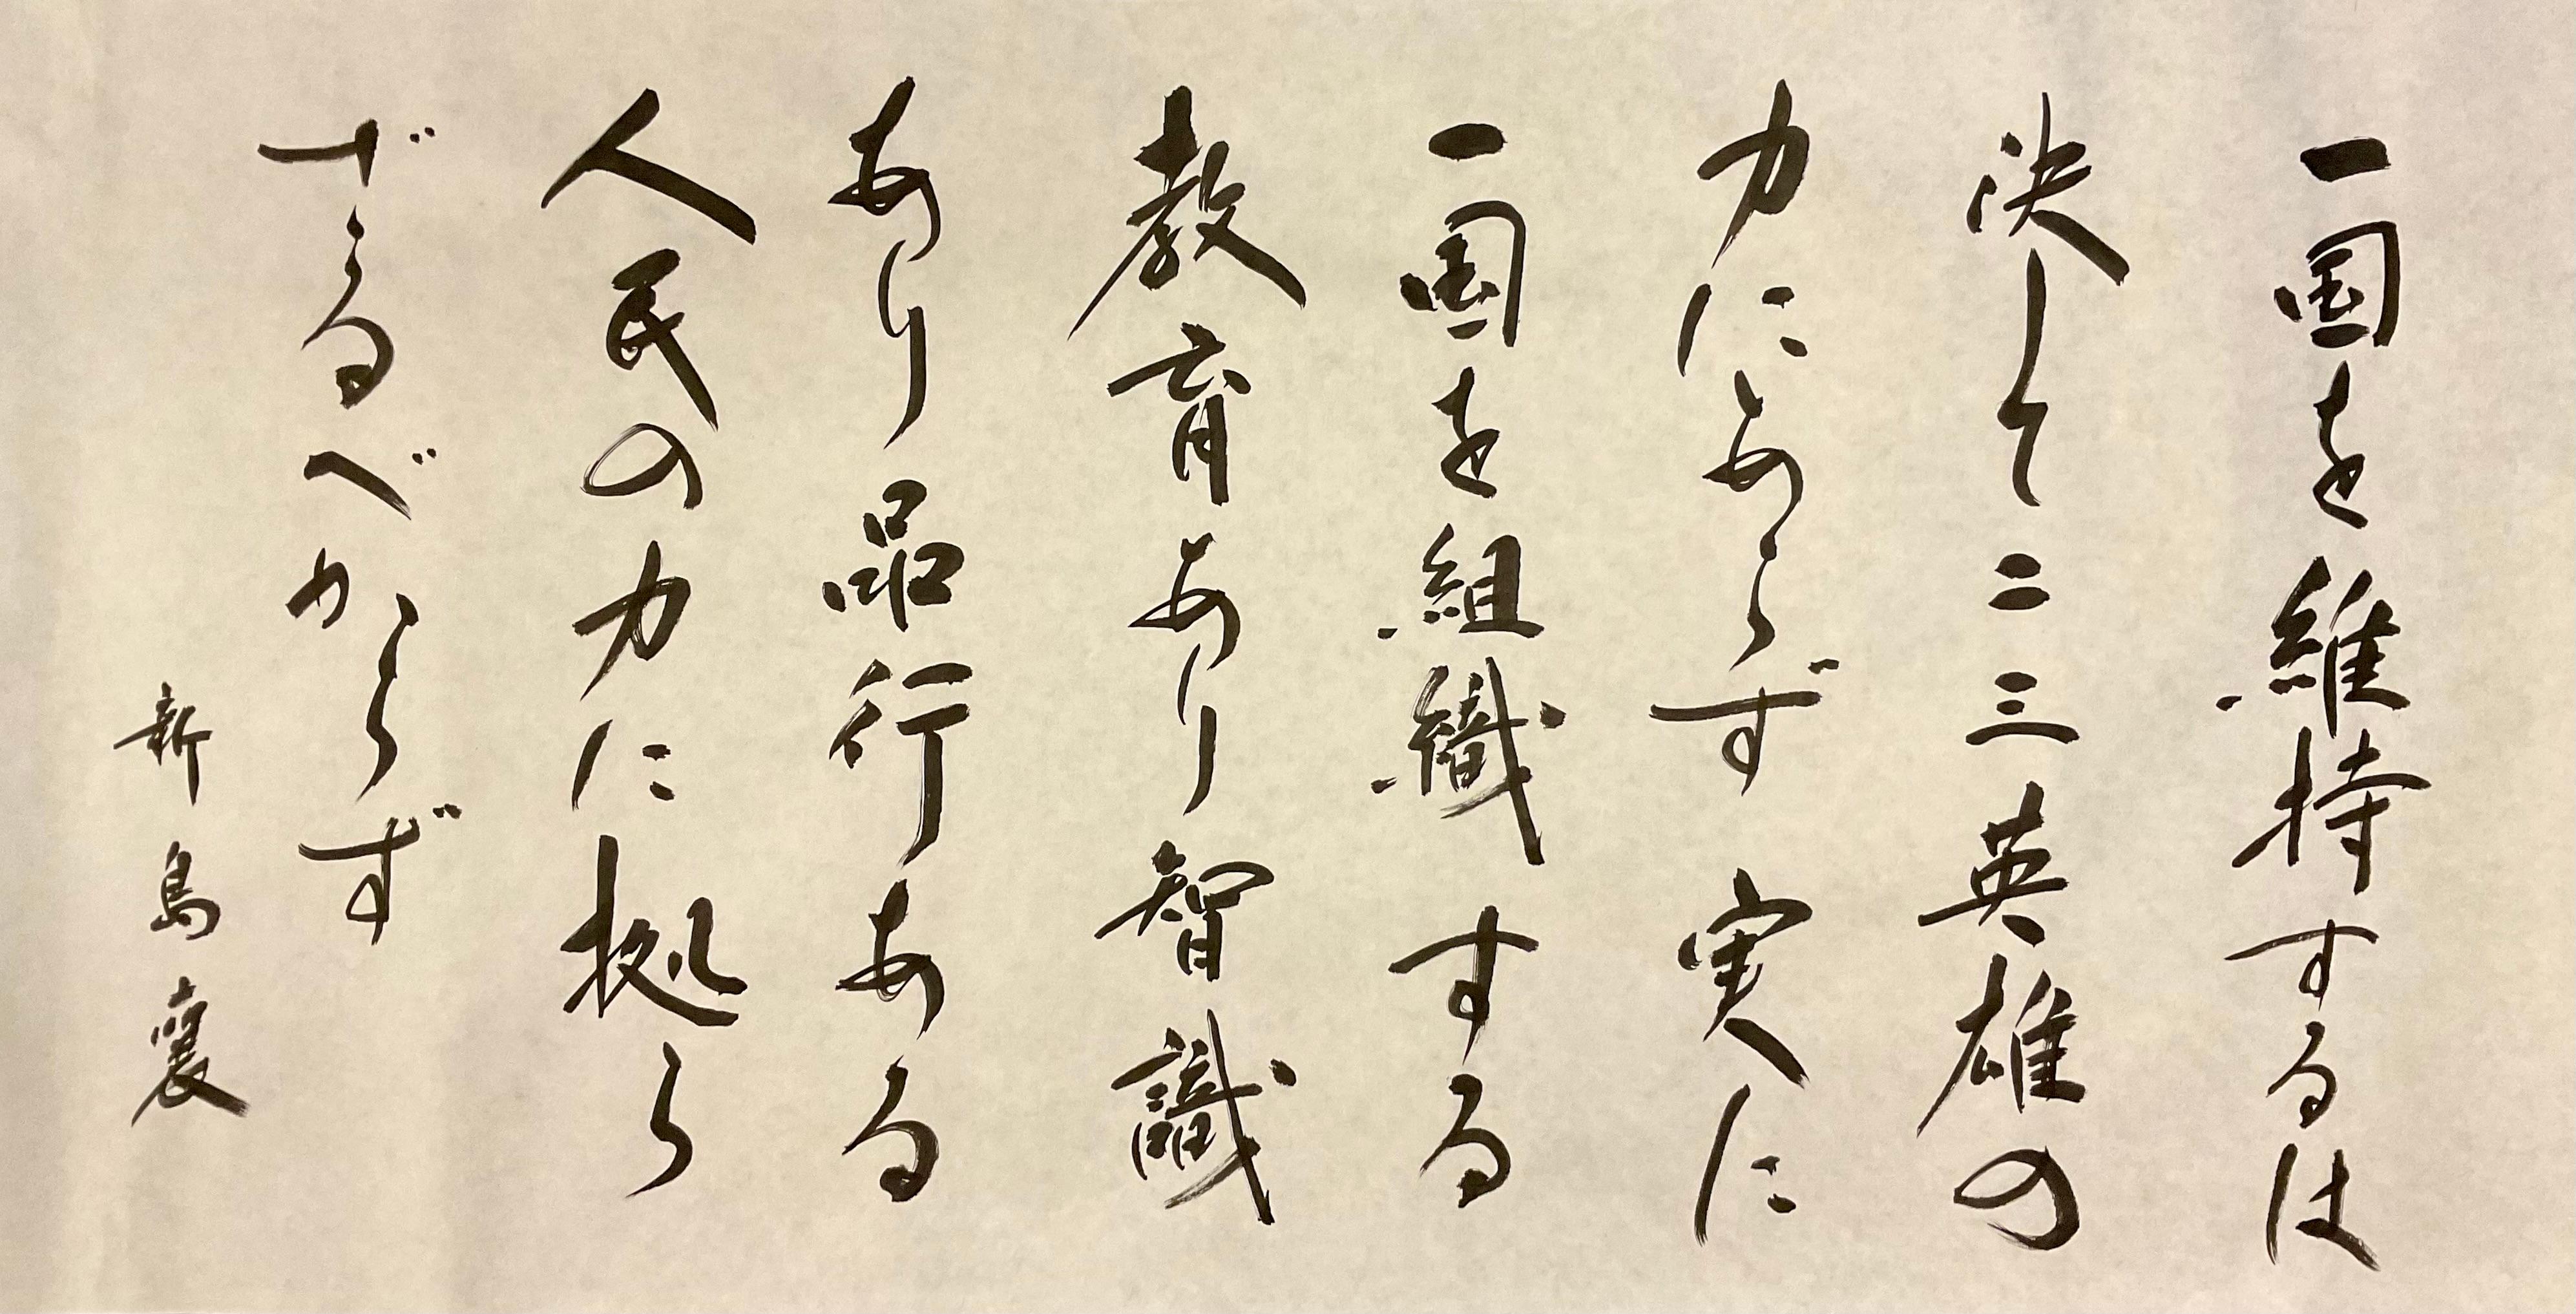 一国を維持するは
決して二三英雄の
力にあらず 実に
一国を組織する
教育あり智識
あり品行ある
人民の力に拠ら
ざるべからず
新島襄